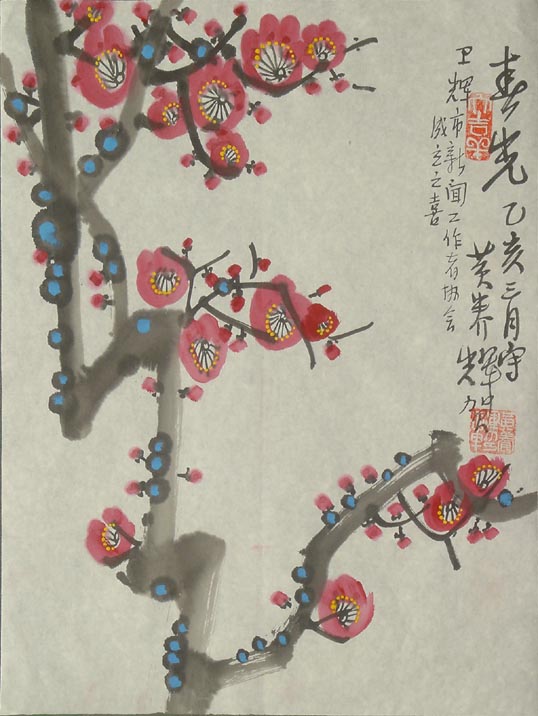 春先 乙亥三月 黄养辉贺
卫辉市新闻工作者协会
成立之喜